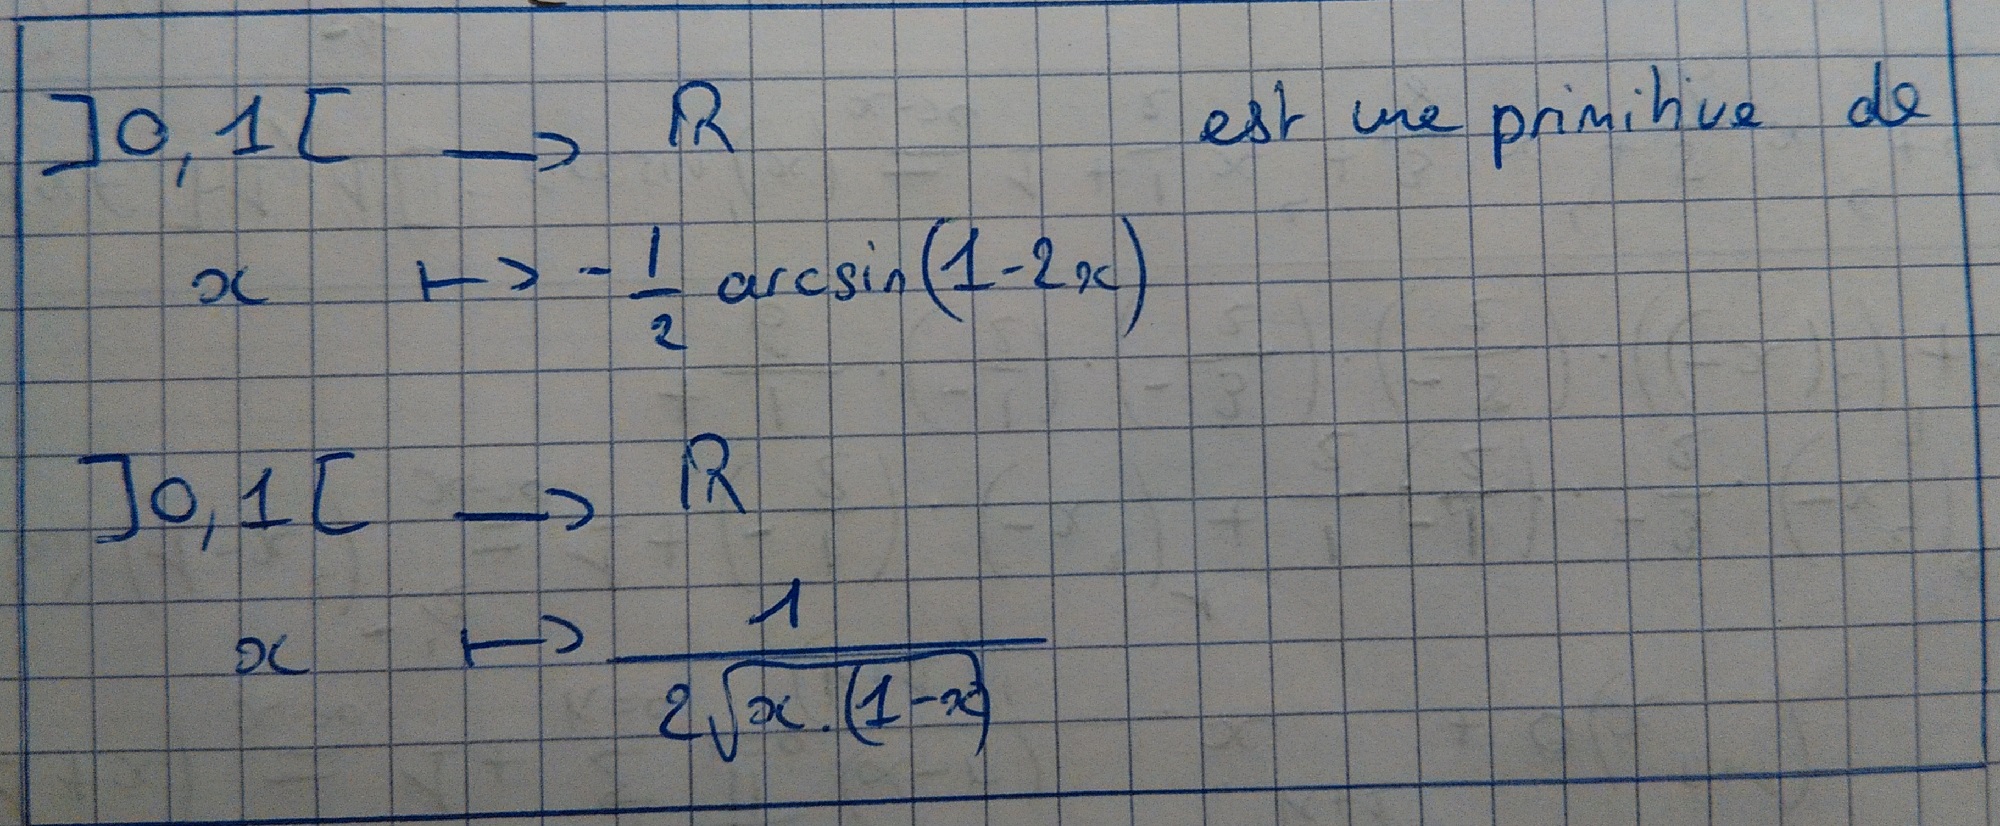 ]0,1[ → ℝ est une primitive de
x ↦ -1/2 arcsin(1-2x)
]0,1[ → ℝ
x ↦ 1/(2√(x.(1-x)))